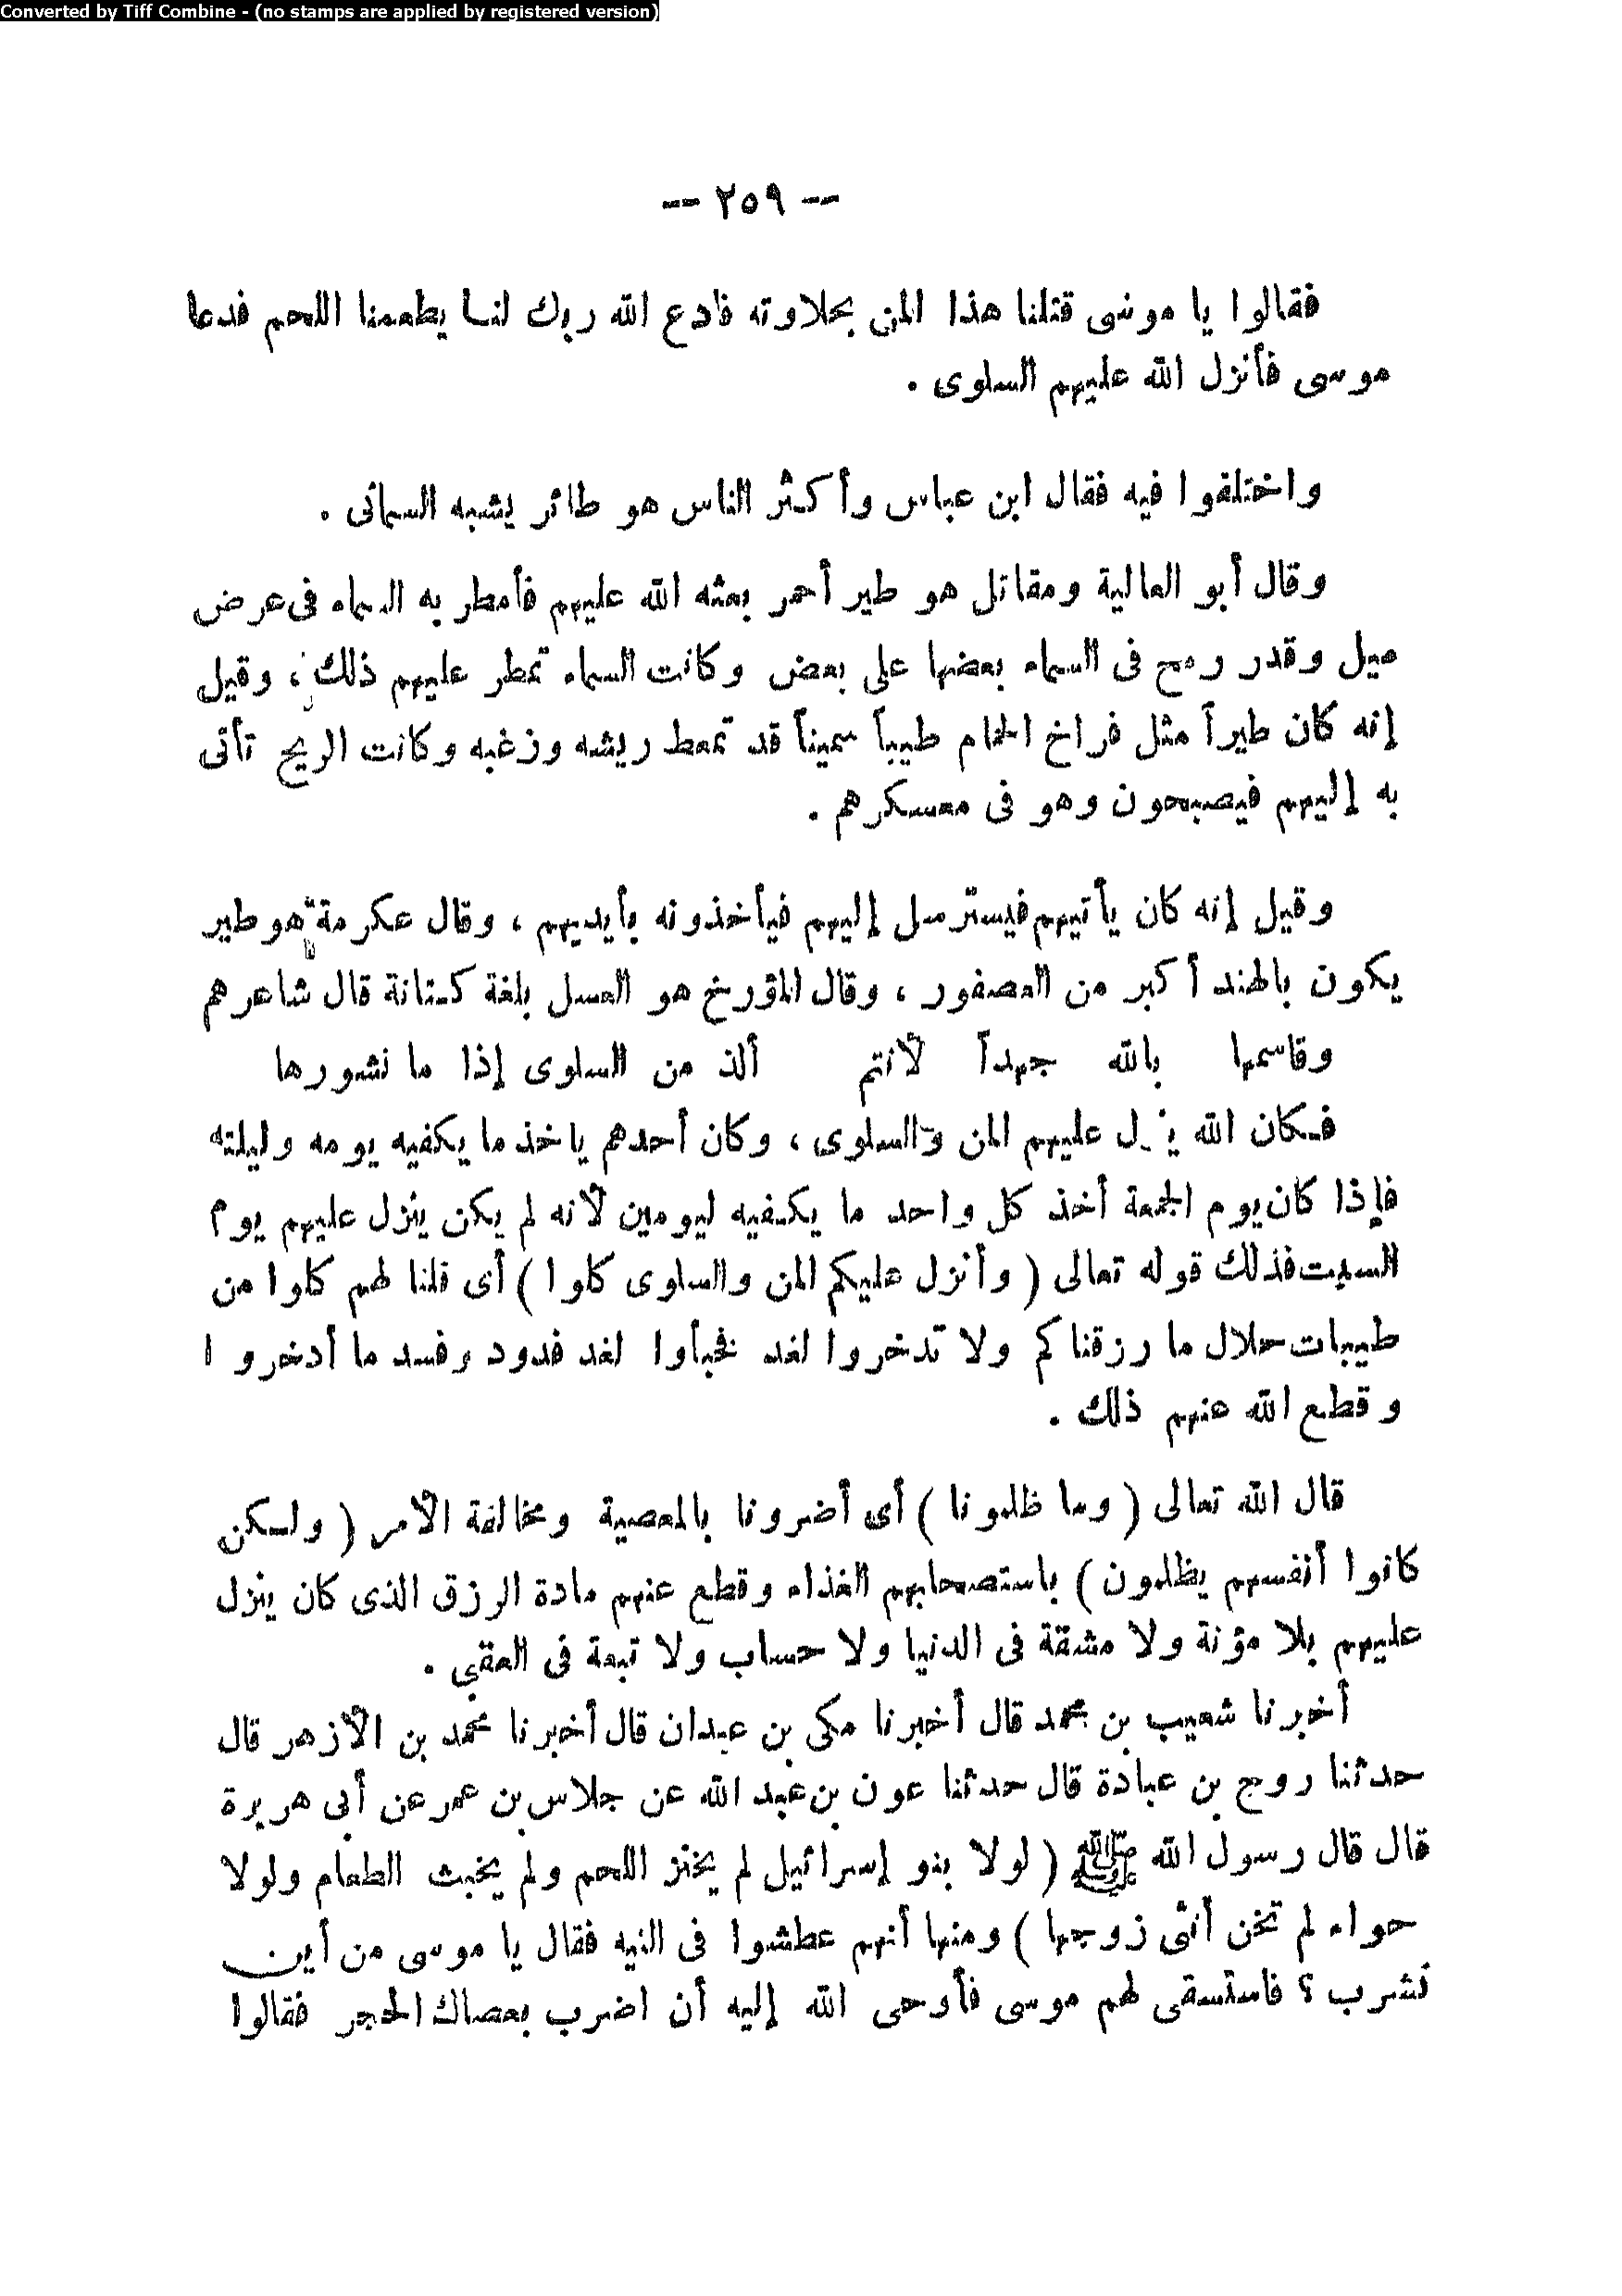 Converted by Tiff Combine - (no stamps are applied by registered version)
-- ٢٥٩ --
فقالوا يا موسى قتلنا هذا المن بحلاوته فادع الله ربك لنا يطعمنا اللحم فدعا
موسى فأنزل الله عليهم السلوى .
واختلفوا فيه فقال ابن عباس وأكثر الناس هو طائر يشبه السمانى .
وقال أبو العالية ومقاتل هو طير أحمر بعثه الله عليهم فأمطر به السماء فى عرض
ميل وقدر رمح فى السماء بعضها على بعض وكانت السماء تمطر عليهم ذلك ، وقيل
إنه كان طيراً مثل فراخ الحمام طيباً سميناً قد تمعط ريشه وزغبه وكانت الريح تأتى
به إليهم فيصبحون وهو فى معسكرهم .
وقيل إنه كان يأتيهم فيسترسل إليهم فيأخذونه بأيديهم ، وقال عكرمة هو طير
يكون بالهند أكبر من العصفور ، وقال المؤرخ هو العسل بلغة كنانة قال شاعرهم
وقاسمها بالله جهداً لأنتم ألذ من السلوى إذا ما نشورها
فكان الله ينزل عليهم المن والسلوى ، وكان أحدهم ياخذ ما يكفيه يومه وليلته
فإذا كان يوم الجمعة أخذ كل واحد ما يكفيه ليومين لأنه لم يكن ينزل عليهم يوم
السبت فذلك قوله تعالى ( وأنزل عليكم المن والسلوى كلوا ) أى قلنا لهم كلوا من
طيبات حلال ما رزقناكم ولا تدخروا لغد فخبأوا لغد فدود وفسد ما أدخروا
وقطع الله عنهم ذلك .
قال الله تعالى ( وما ظلمونا ) أى أضرونا بالمعصية ومخالفة الأمر ( ولكن
كانوا أنفسهم يظلمون ) باستصحابهم الغذاء وقطع عنهم مادة الرزق الذى كان ينزل
عليهم بلا مؤنة ولا مشقة فى الدنيا ولا حساب ولا تبعة فى العقبى .
أخبرنا شعيب بن محمد قال أخبرنا مكى بن عبدان قال أخبرنا محمد بن الأزهر قال
حدثنا روح بن عبادة قال حدثنا عون بن عبد الله عن جلاس بن عمر عن أبى هريرة
قال قال رسول الله ﷺ ( لولا بنو إسرائيل لم يخنز اللحم ولم يخبث الطعام ولولا
حواء لم تخن أنثى زوجها ) ومنها أنهم عطشوا فى التيه فقال يا موسى من أين
نشرب ؟ فاستسقى لهم موسى فأوحى الله إليه أن اضرب بعصاك الحجر فقالوا